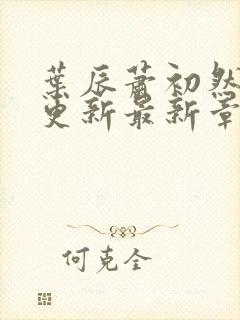 葉辰蕭初然
更新最新章
何克全